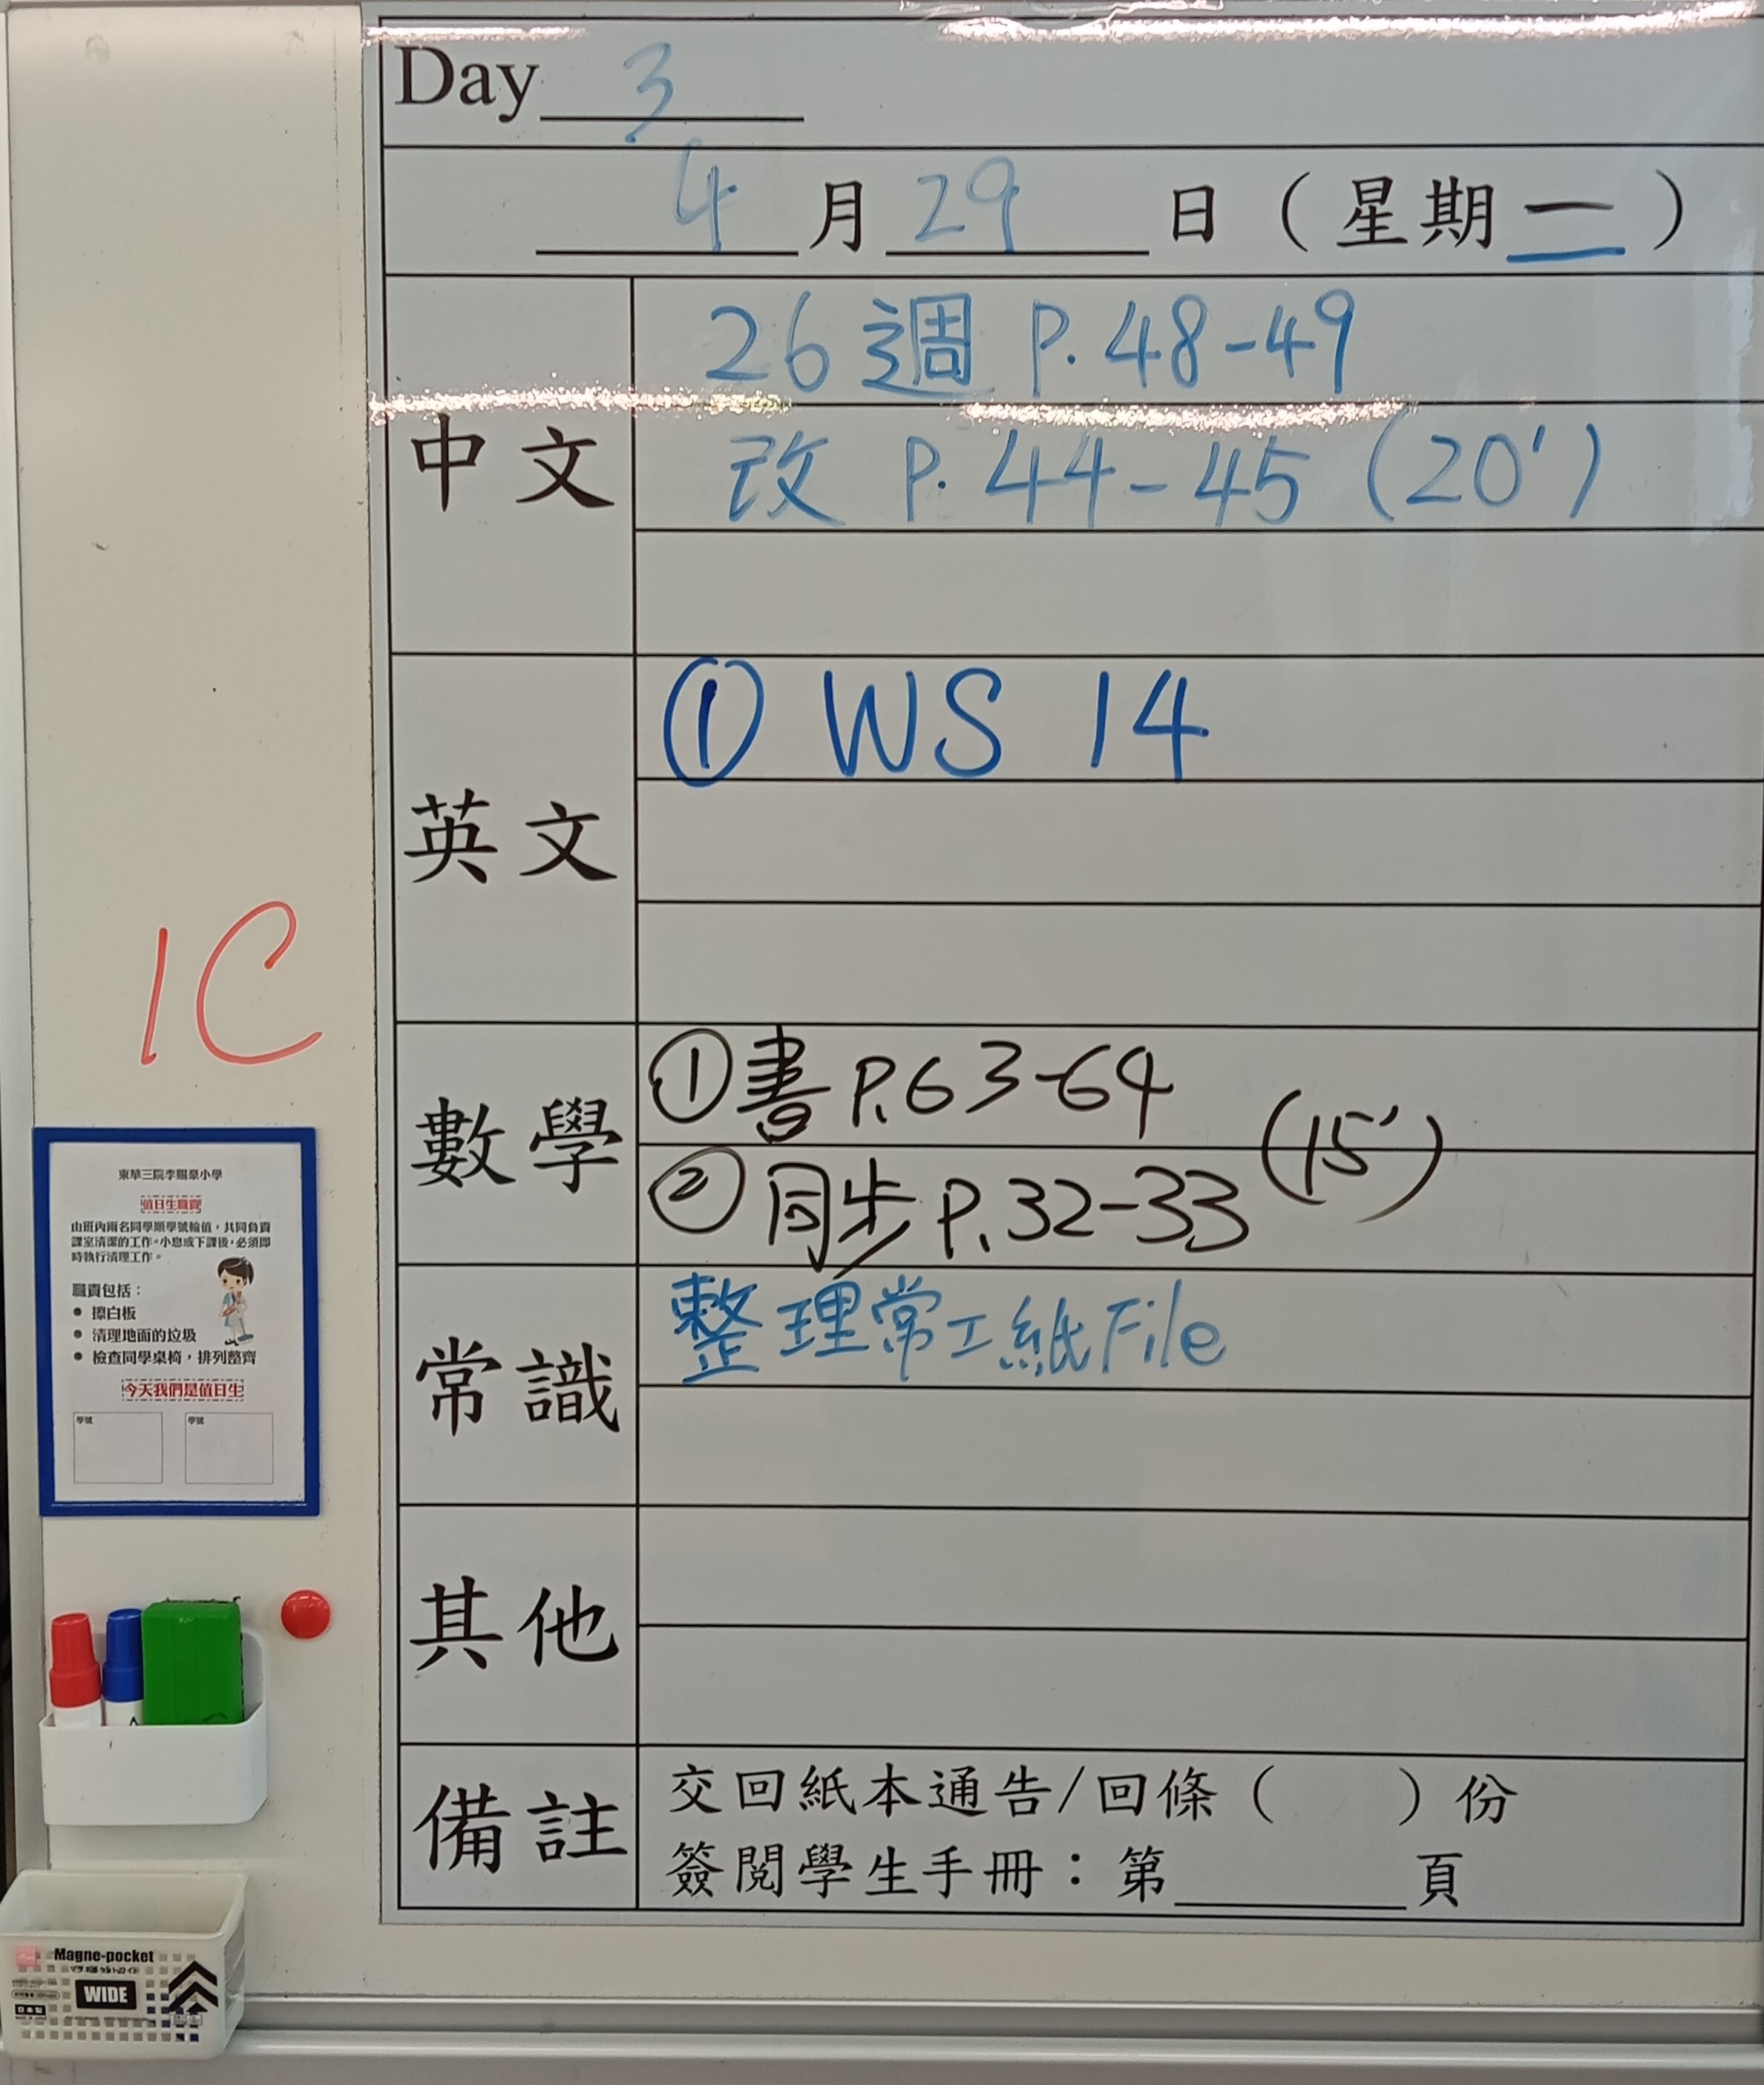 Day 3
4月29日(星期二)
中文
26週 P.48-49
改 P.44-45 (20')
英文
① WS 14
數學
①書P.63-64
(15')
②同步P.32-33
常識
整理常工紙File
其他
備註
交回紙本通告/回條( )份
簽閱學生手冊:第______頁
1C
東華三院李賜豪小學
值日生職責
由班內兩名同學順學號輪值,共同負責
課室清潔的工作。小息或下課後,必須即
時執行清理工作。
職責包括:
● 擦白板
● 清理地面的垃圾
● 檢查同學桌椅,排列整齊
今天我們是值日生
學號 學號
Magne-pocket
WIDE
日本製